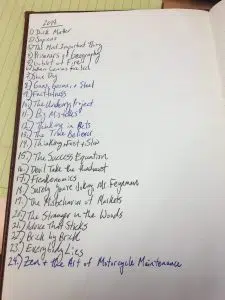 2019
1) Dark Matter
2) Sapiens
3) The Most Important Thing
4) Prisoners of Geography
5) Unfit at Any
6) When Genius Failed
7) Blue Day
8) Guns, Germs, & Steel
9) Factfulness
10) The Undoing Project
11) Big Mistakes
12) Thinking in Bets
13) The True Believer
14) Thinking Fast & Slow
15) The Success Equation
16) Devil Take the Hindmost
17) Freakonomics
18) Surely You're Joking Mr. Feynman
19) The Misbehavior of Markets
20) The Stranger in the Woods
21) Advice That Sticks
22) Brick by Brick
23) Everybody Lies
24) Zen & the Art of Motorcycle Maintenance